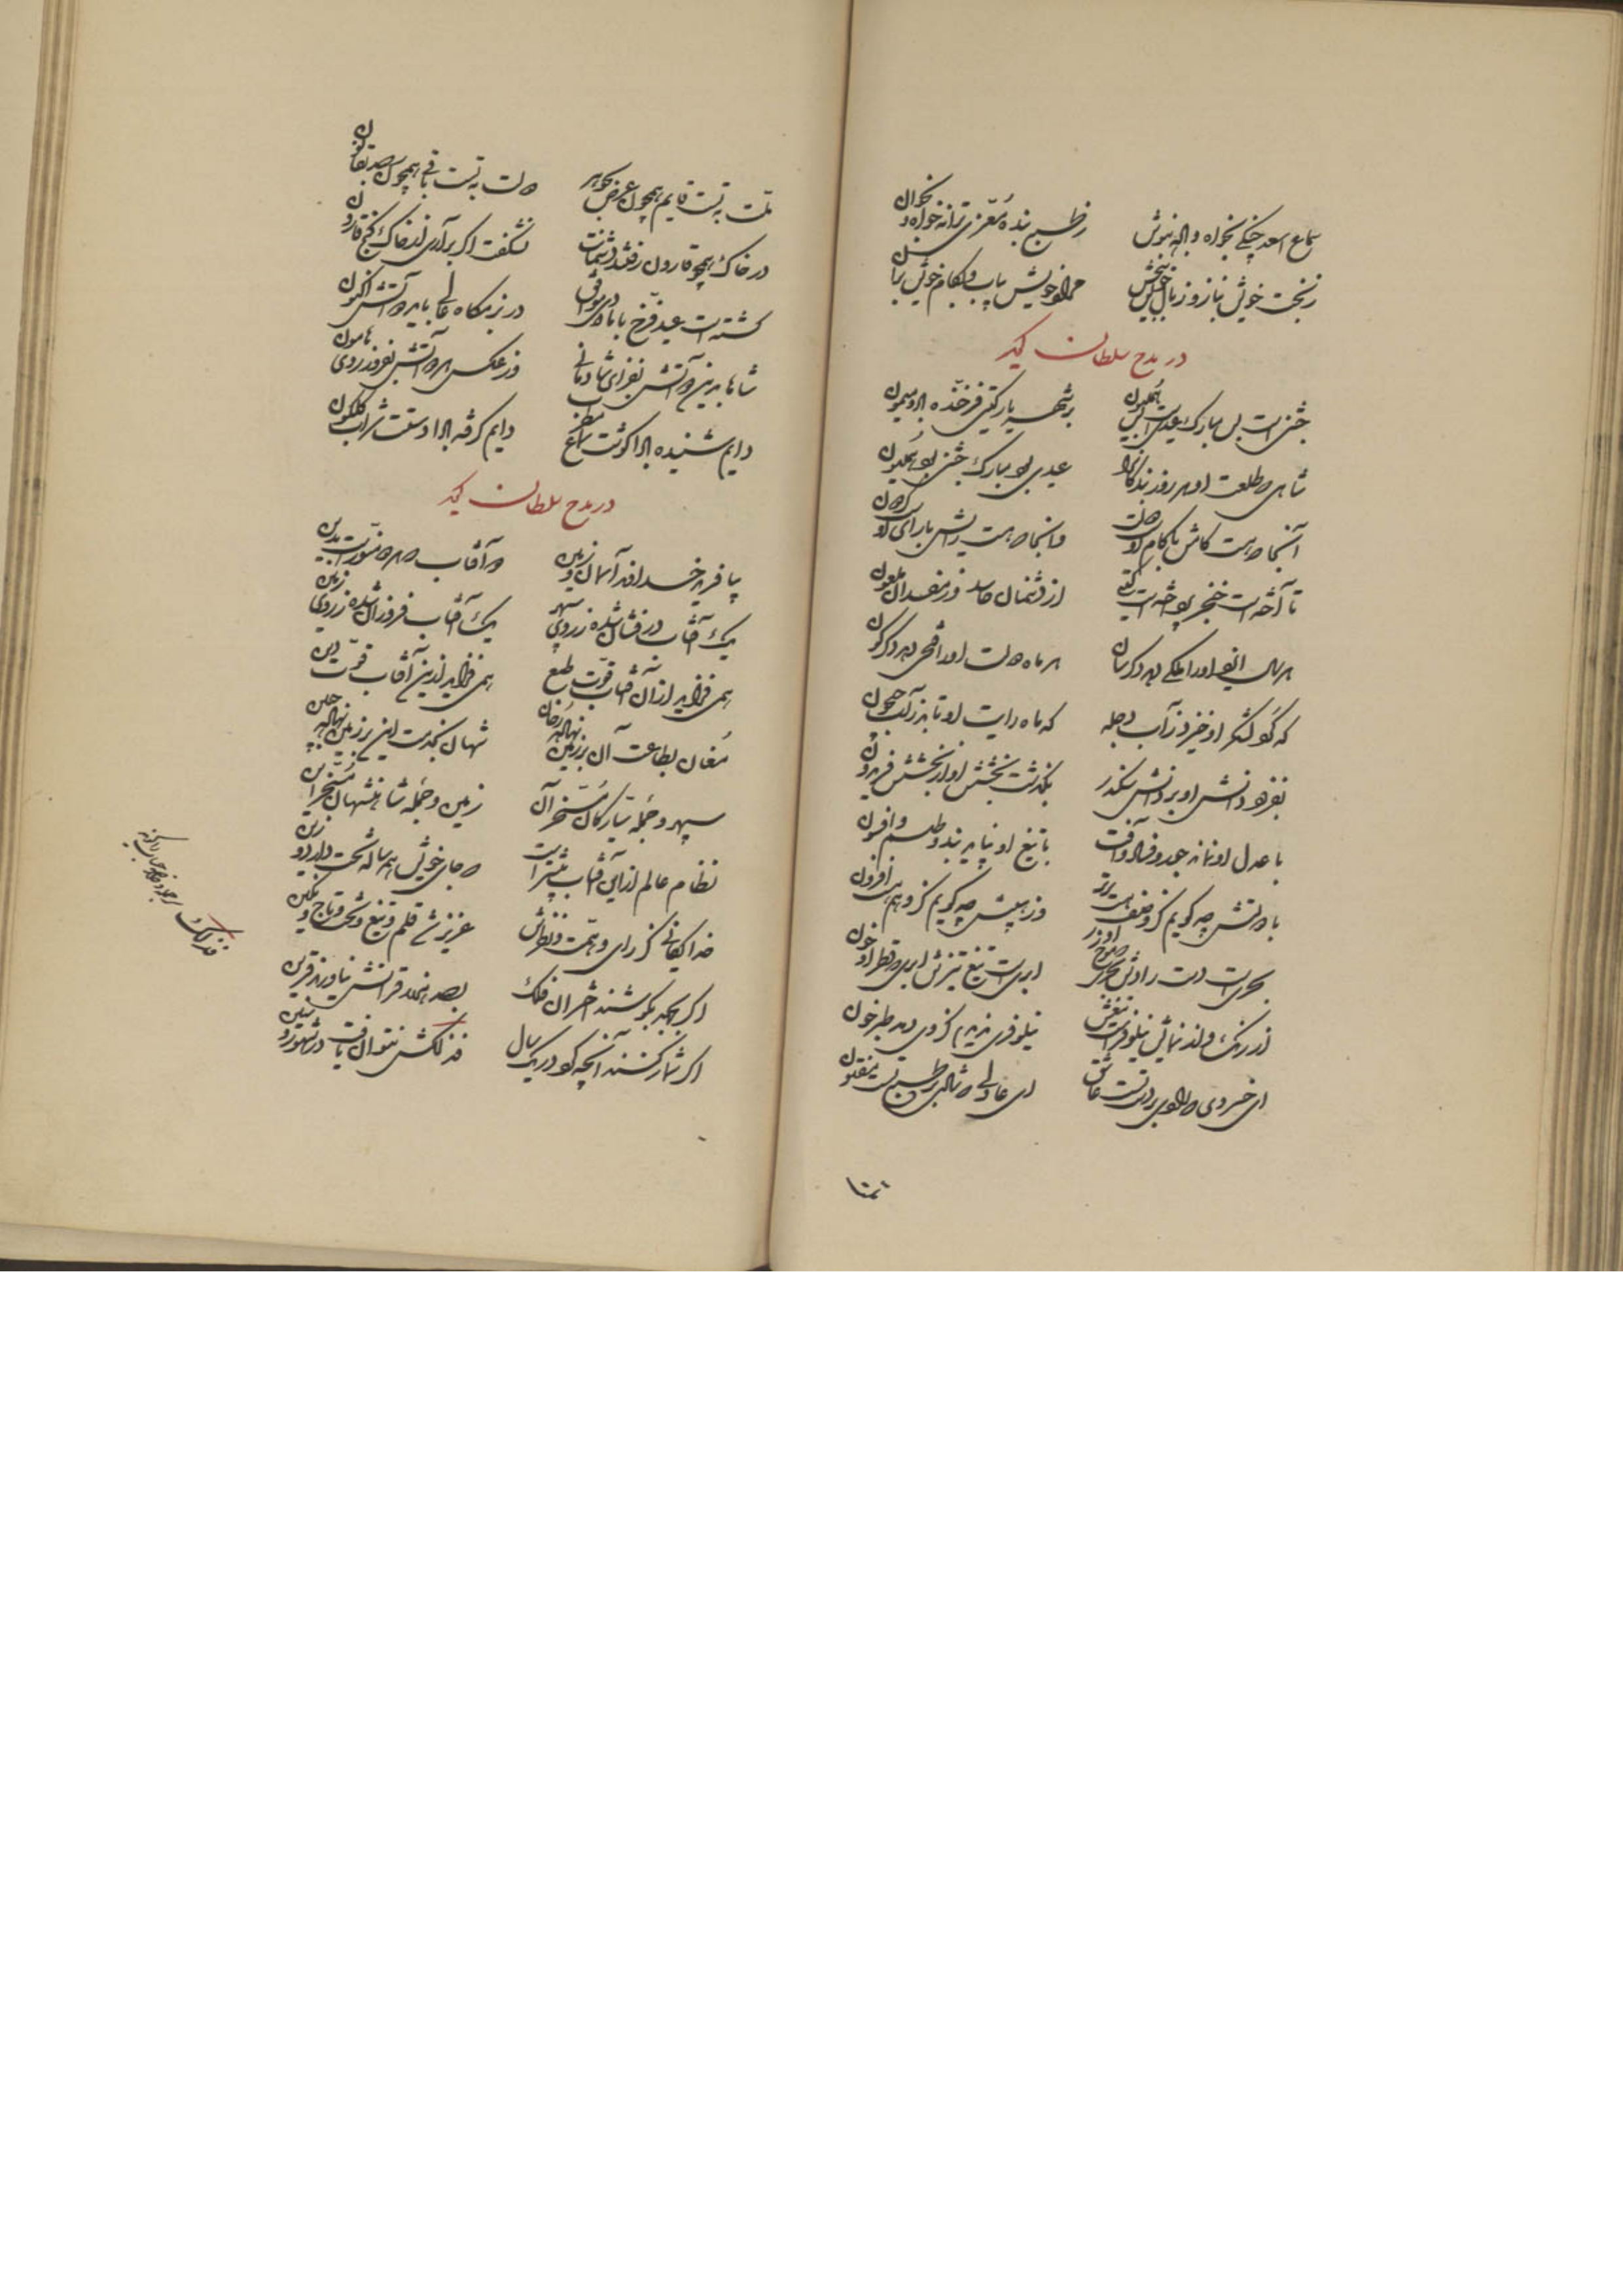 سماع اسعد چنگی بخواه و باده بنوش ز طبع بنده معزی ترانه خواه و بخوان
ز بخت خویش بناز و ز مال خویش ببخش مراد خویش بیاب و بکام خویش بران
در مدح سلطان گوید
جشنی است بس مبارک عیدی است بس همایون بر شهریار گیتی فرخنده باد و میمون
شاهی که طلعت او هر روز بندگان را عیدی بود مبارک جشنی بود همایون
آنجا که هست کامش با کام اوست دولت و آنجا که هست رایش با رای اوست گردون
تا آخته است خنجر پرداخته است گیتی از دشمنان حاسد وز مفسدان ملعون
هر سال ایزد او را ملکی دهد دگرسان هر ماه دولت او را فتحی دهد دگرگون
گه گرد لشکر او خیزد ز آب دجله گه ماه رایت او تابد ز آب جیحون
بفزود دانش او بر دانش سکندر بگذشت بخشش او از بخشش فریدون
با عدل او نماند جور و فساد و آفت با تیغ او نپاید بند و طلسم و افسون
با دولتش چه گویم کز وصف هست برتر وز هیبتش چه گویم کز وهم هست افزون
بحری است دست رادش بحری که موج او زر ابری است تیغ تیزش ابری که قطر او خون
از رنگ و از نمایش نیلوفر است تیغش نیلوفری ندیدم کز وی دمد طبرخون
ای خسروی که دلها بر دولت تست عاشق ای عادلی که شاهی بر طبع تست مفتون
ملت به تست قایم همچون عرض بجوهر دولت به تست باقی همچون صدف بقانون
در خاک همچو قارون رفتند دشمنانت نشگفت اگر برآری از خاک گنج قارون
گشته است عید فرخ با ماه دی موافق در بزمگاه عالی باید دو آتش اکنون
شاها بدین دو آتش بفزای شادمانی وز عکس هر دو آتش بفروز روی هامون
دایم شنیده بادا گوشت سماع مطرب دایم گرفته بادا دستت شراب گلگون
در مدح سلطان گوید
بیافرید خداوند آسمان و زمین دو آفتاب که هر دو منورست بدین
یک آفتاب درفشان شده ز روی سپهر یک آفتاب فروزان شده ز روی زمین
همی فزاید از آن آفتاب قوت طبع همی فزاید ازین آفتاب قوت دین
مغان بطاعت آن بر زمین نهاده رخان شهان بخدمت این بر زمین نهاده جبین
سپهر و جمله سیارگان مسخر آن زمین و جمله شاهنشهان مسخر این
نظام عالم ازین آفتاب بیشتر است که جای خویش همه ساله تخت دارد و زین
خدایگانی کز رای و همت و نظرش عزیز شد قلم و تیغ و تخت و تاج و نگین
اگر بجهد بکوشند اختران فلک بصد هزار قرانش نیاورند قرین
اگر شمار کنند آنچه کرد در یک سال فذلکش نتوان یافت در شهور و سنین
فذلک